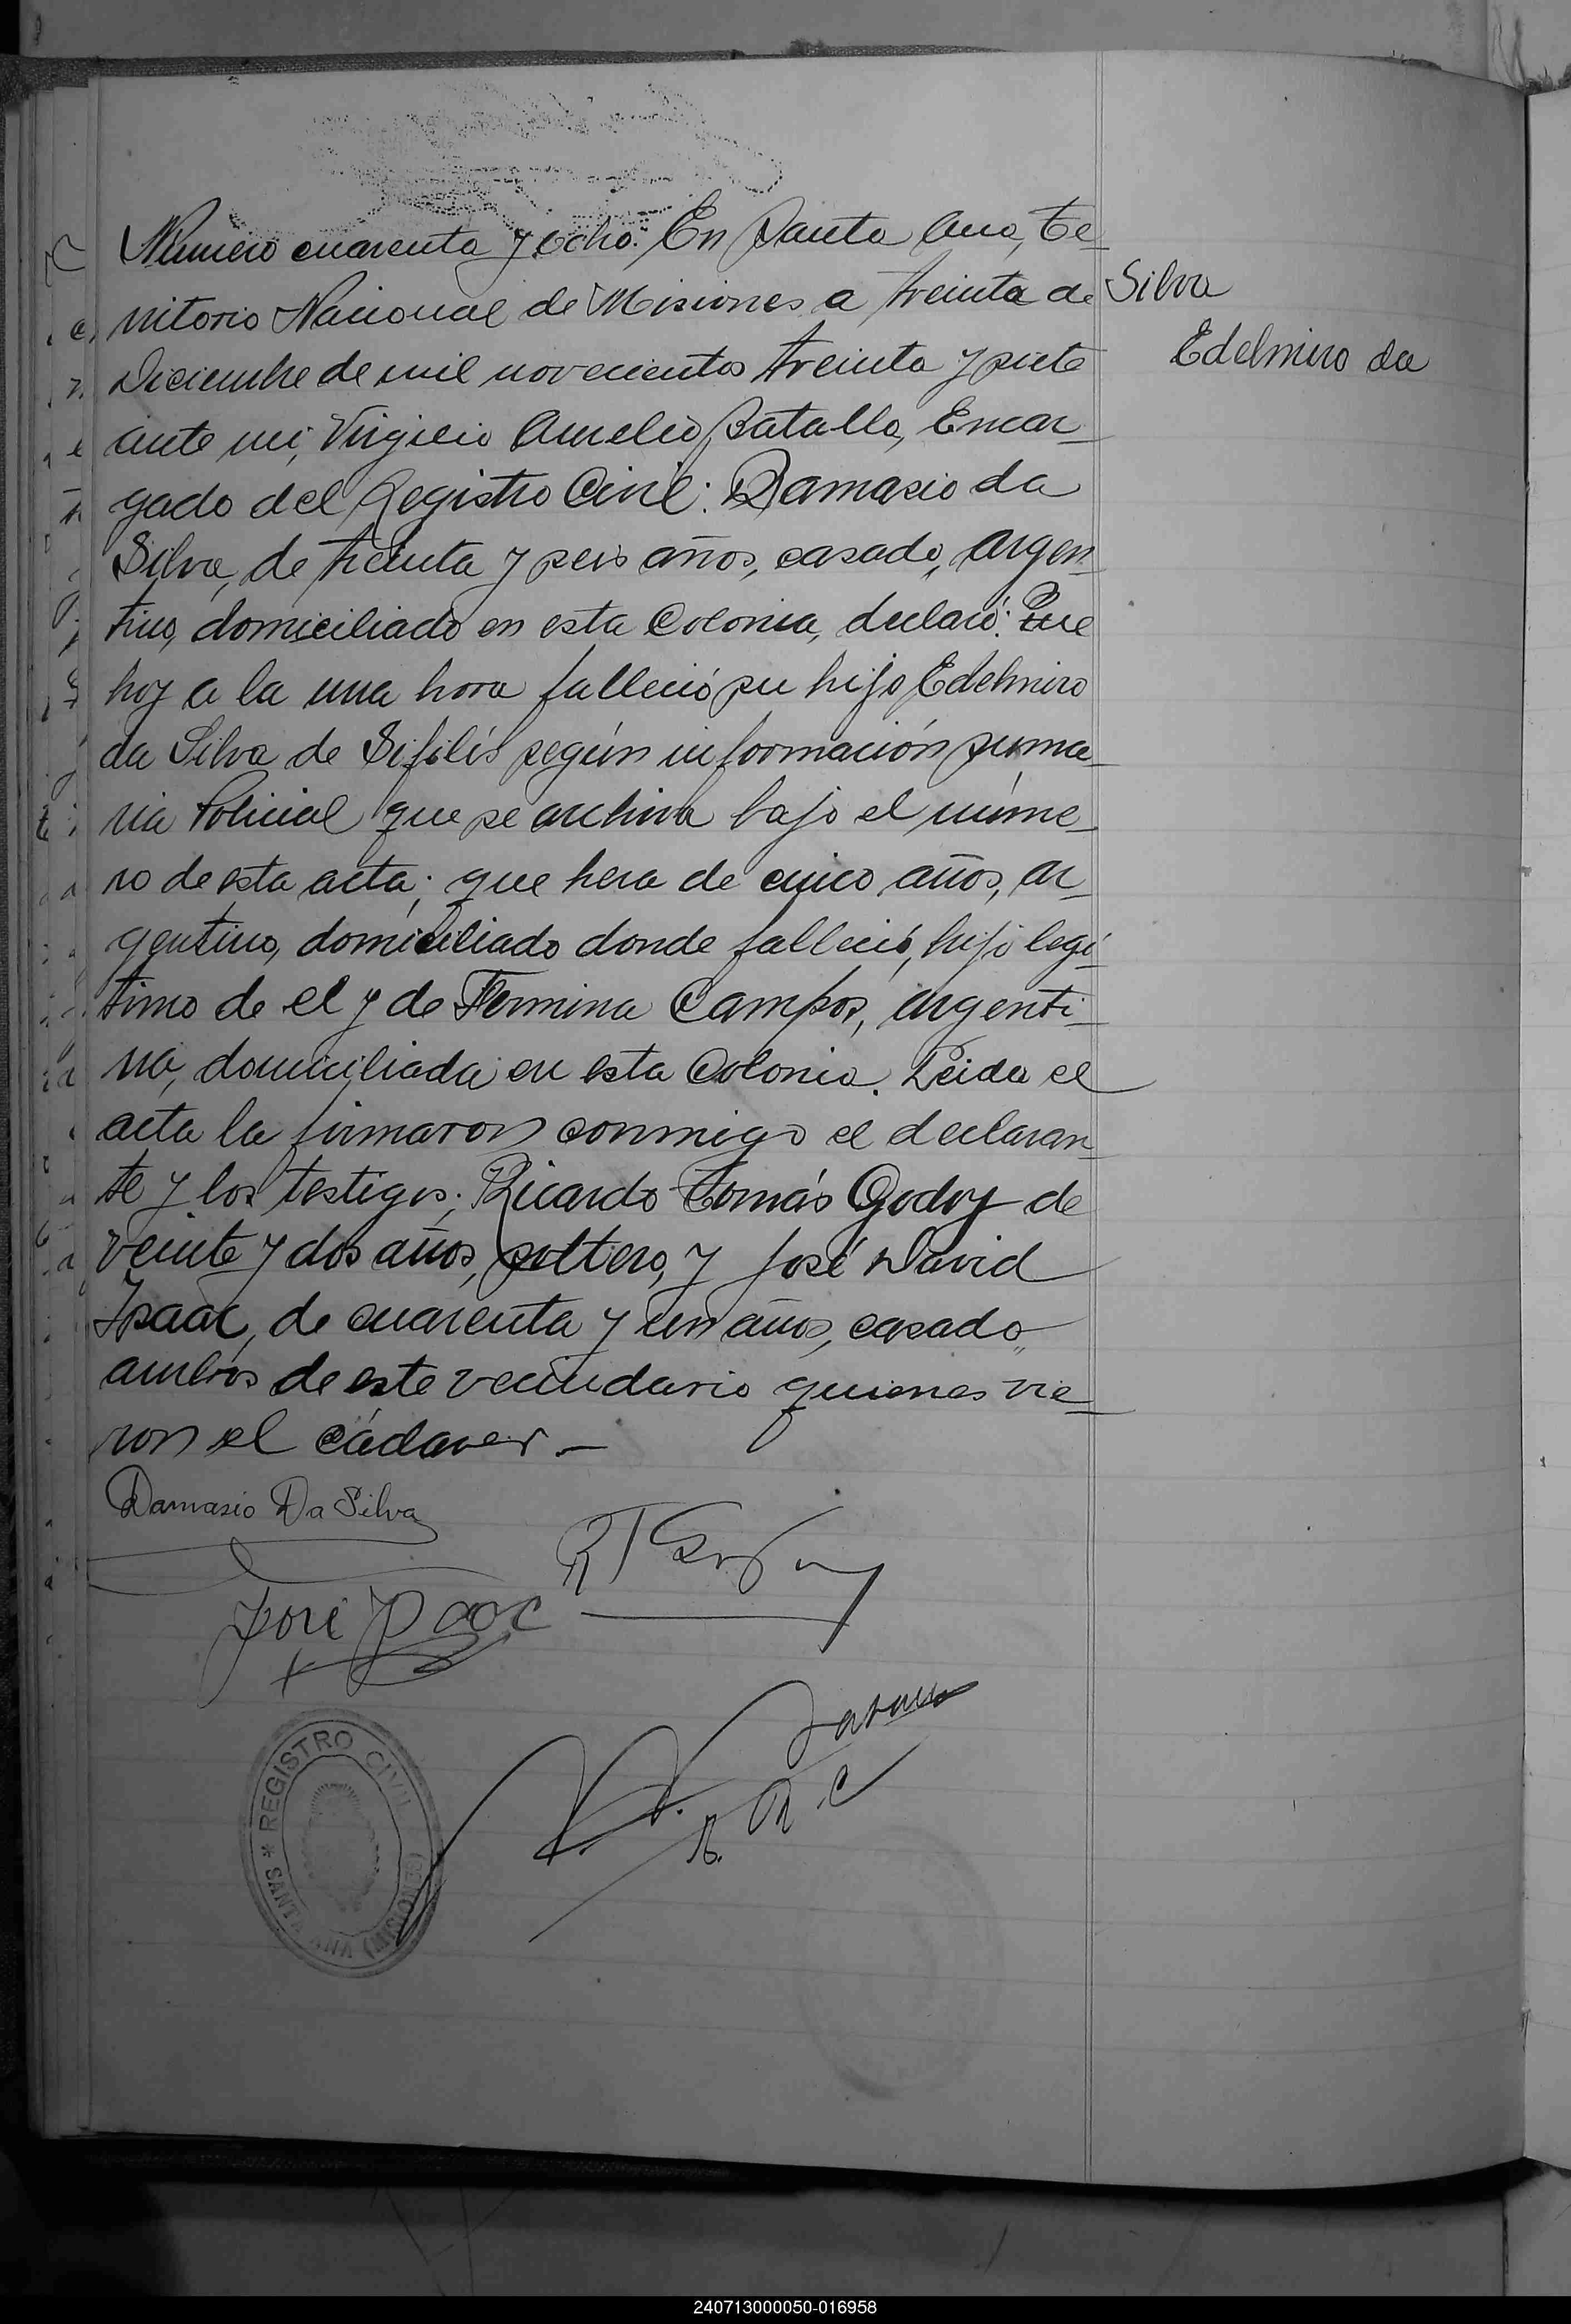 Número cuarenta y ocho. En Santa Ana, Te-
rritorio Nacional de Misiones a treinta de
Diciembre de mil novecientos treinta y siete
ante mi, Virgilio Aurelio Batalla, Encar-
gado del Registro Civil: Damasio da
Silva, de treinta y seis años, casado, argen-
tino, domiciliado en esta Colonia, declaró: Que
hoy a la una hora falleció su hijo Edelmiro
da Silva de Sifilis según información suma-
ria Policial que se archiva bajo el núme-
ro de esta acta; que hera de cinco años, ar-
gentino, domiciliado donde falleció, hijo legi-
timo de el y de Fermina Campos, argenti-
na, domiciliada en esta Colonia. Leida el
acta la firmaron conmigo el declaran-
te y los testigos; Ricardo Tomás Godoy de
veinte y dos años, soltero, y José David
Isaac, de cuarenta y un años, casado,
ambos de este vecindario quienes vie-
ron el cádaver.—
Silva
Edelmiro da
Damasio Da Silva
José Isaac
REGISTRO CIVIL
* SANTA ANA (MISIONES)
240713000050-016958